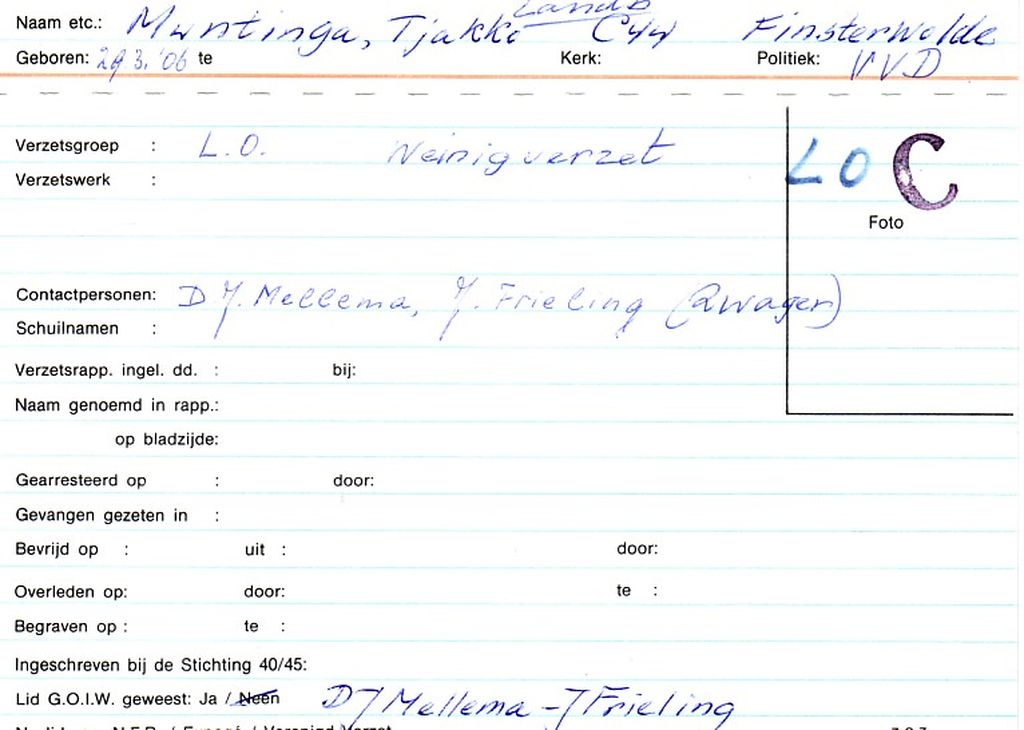 Landb
Naam etc.: Muntinga, Tjakko C44 Finsterwolde
Geboren: 29 3.'06 te Kerk: Politiek: VVD
Verzetsgroep : L.O. Weinig verzet
Verzetswerk :
LO C
Foto
Contactpersonen: D J. Mellema, J. Frieling (zwager)
Schuilnamen :
Verzetsrapp. ingel. dd. : bij:
Naam genoemd in rapp.:
op bladzijde:
Gearresteerd op : door:
Gevangen gezeten in :
Bevrijd op : uit : door:
Overleden op: door: te :
Begraven op : te :
Ingeschreven bij de Stichting 40/45:
Lid G.O.I.W. geweest: Ja / Neen DJ Mellema - J Frieling